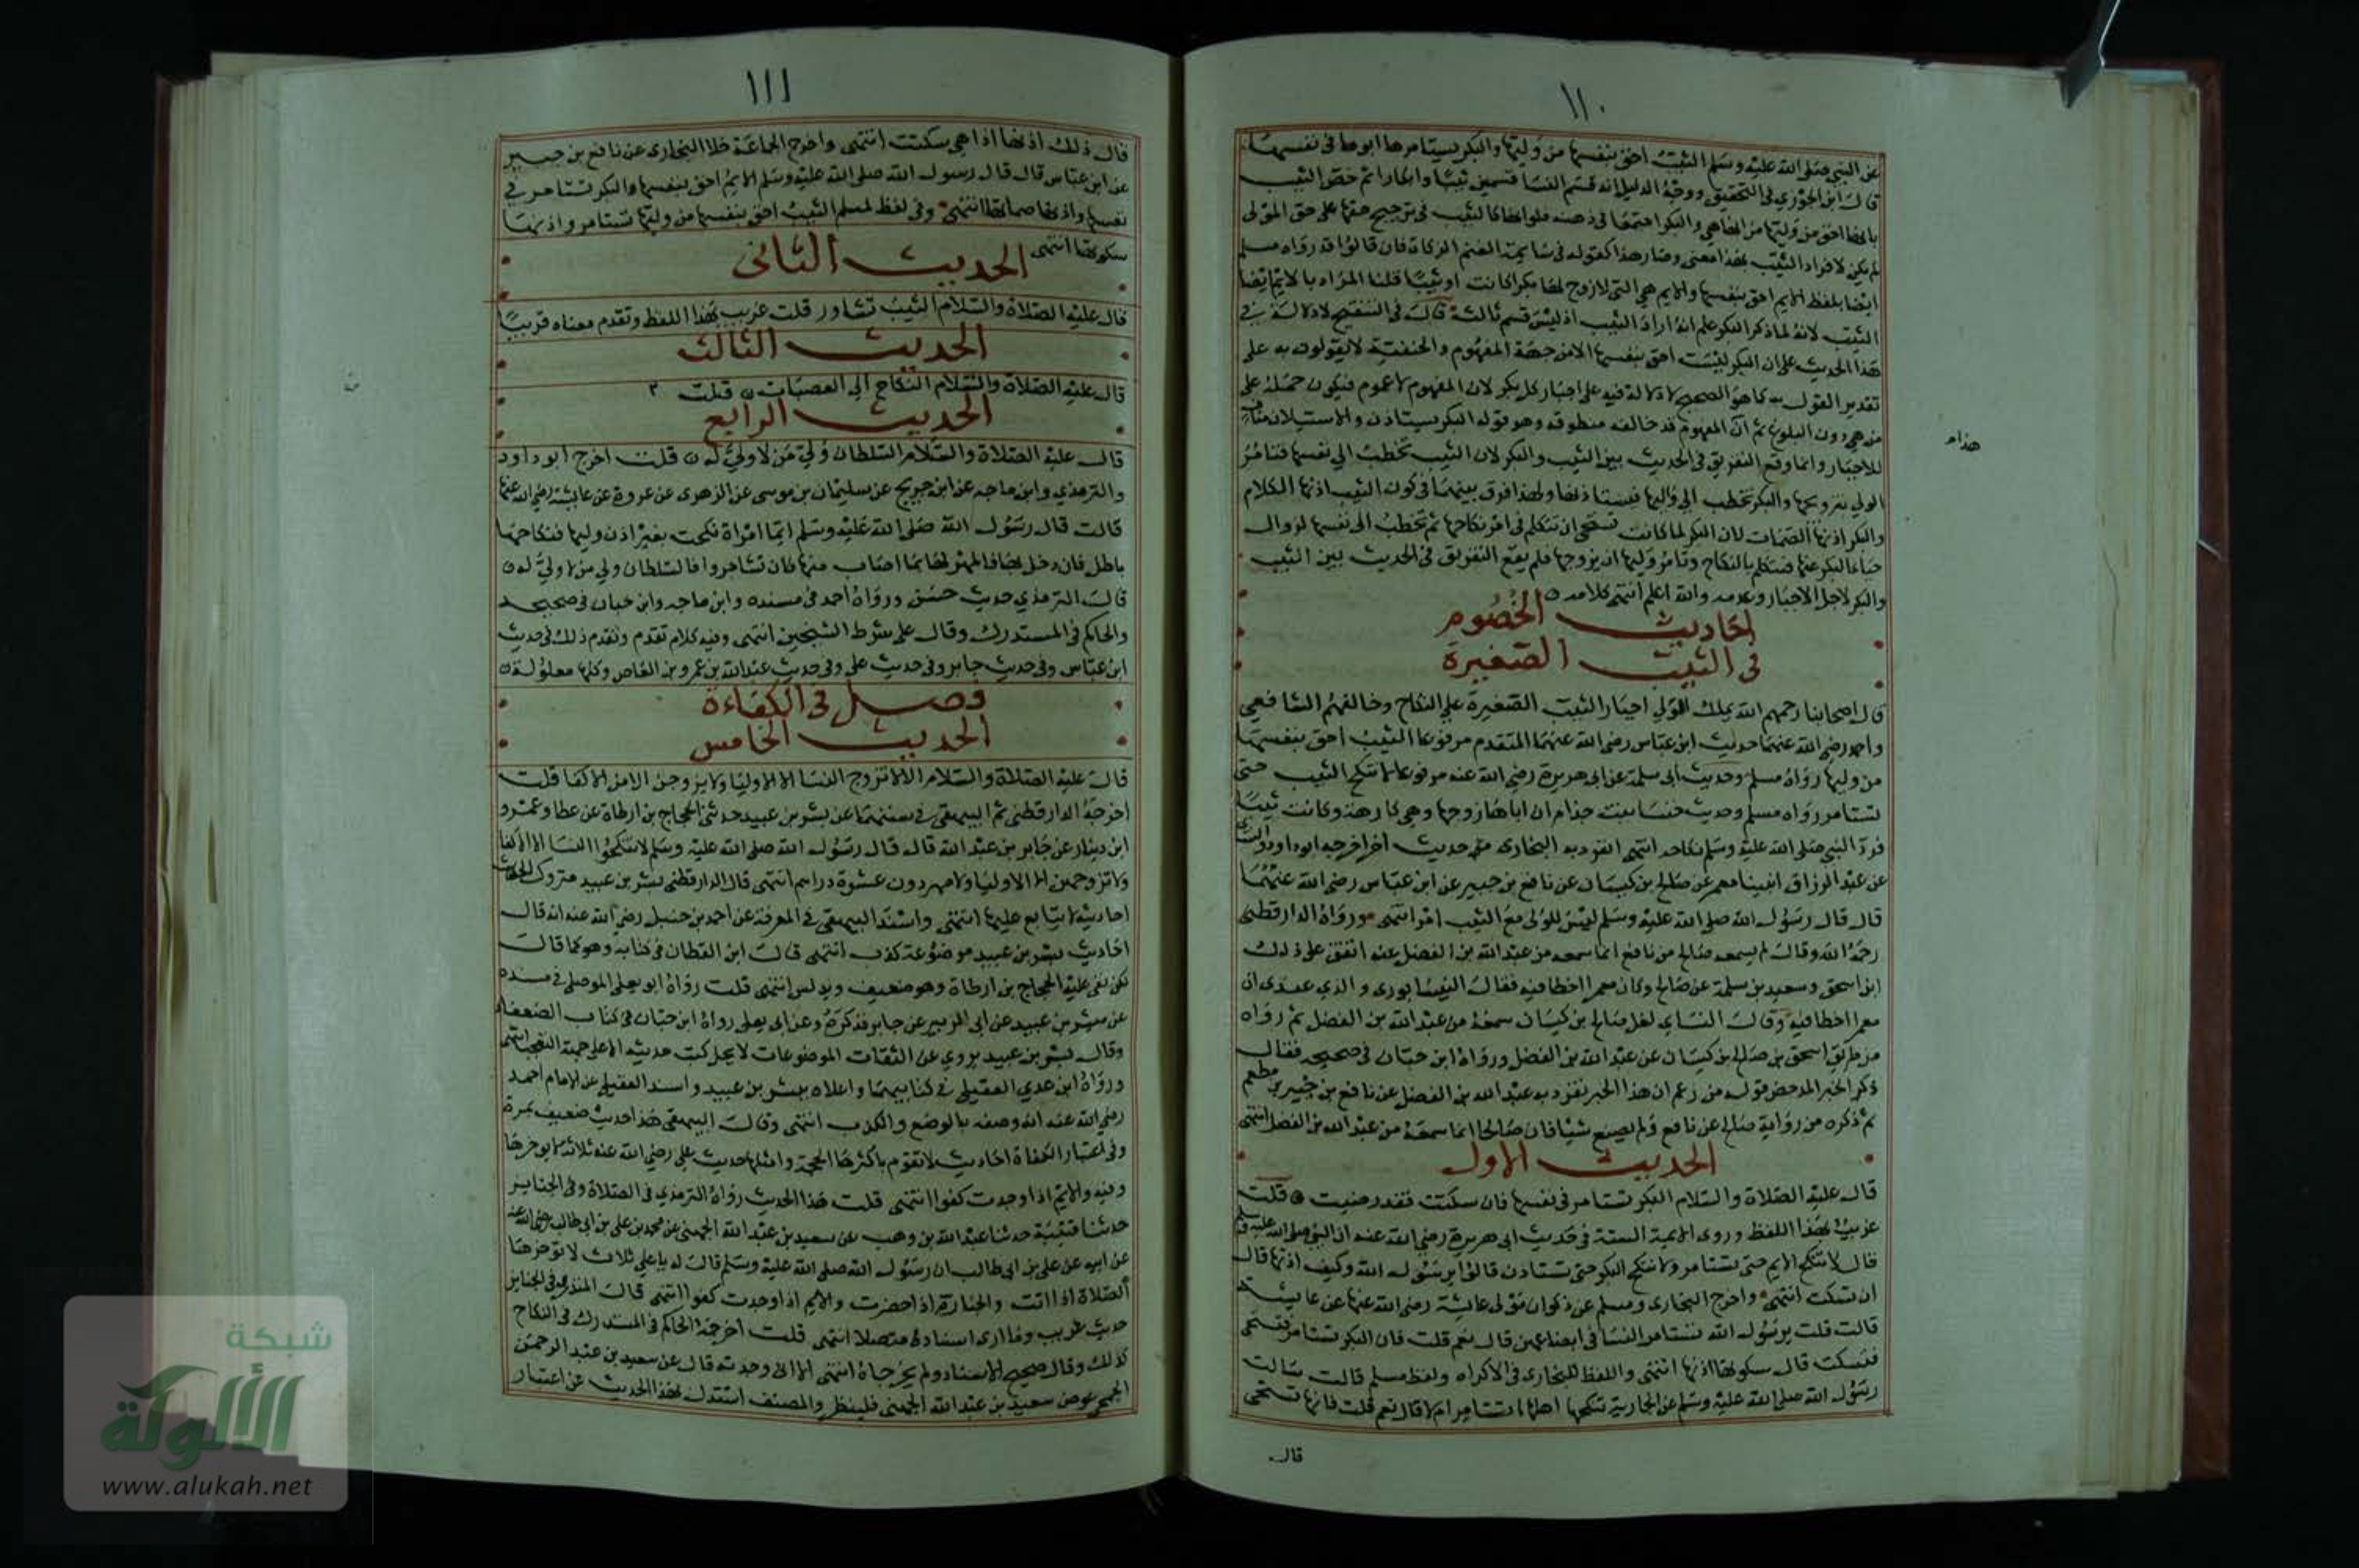 ١١٠
عن النبي صلى الله عليه وسلم الثيب احق بنفسها من وليها والبكر يستامرها ابوها في نفسها
قال ابن الجوزي في التحقيق ووجه الدليل انه قسم النسا قسمين ثيبا وابكارا ثم خص الثيب
بانها احق من وليها مع انها هي والبكر اجتمعا في ذهنه فلو انها كالثيب في ترجيح حقها على حق المولى
لم يكن لافراد الثيب بهذا معنى وصار هذا كقوله في سايمة الغنم الزكاة فان قالوا قد رواه مسلم
ايضا بلفظ الايم احق بنفسها والايم هي التي لا زوج لها بكرا كانت او ثيبا قلنا المراد بالايم ايضا
الثيب لانه لما ذكر البكر علم انه اراد الثيب اذ ليس قسم ثالث قال في التنقيح لا دلالة في
هذا الحديث على ان البكر ليست احق بنفسها الا من جهة المفهوم والحنفية لا يقولون به على
تقدير القول به كما هو الصحيح لا دلالة فيه على اجبار كل بكر لان المفهوم لا عموم فيكون حمله على
من هي دون البلوغ ثم ان المفهوم قد خالفه منطوقه وهو قوله البكر يستاذن والاستيذان مناف
هذا م
للاجبار وانما وقع التفريق في الحديث بين الثيب والبكر لان الثيب تخطب الى نفسها فتامر
الولي بتزويجها والبكر تخطب الى وليها فيستاذنها ولهذا فرق بينهما في كون الثيب اذنها الكلام
والبكر اذنها الصمات لان البكر لما كانت تستحي ان تتكلم في امر نكاحها لم تخطب الى نفسها لزوال
حيا البكر عنها فتتكلم بالنكاح وتامر وليها ان يزوجها فلم يقع التفريق في الحديث بين الثيب
والبكر لاجل الاجبار وعدمه والله اعلم انتهى كلامه
احاديث الخصوم
في الثيب الصغيرة
قال اصحابنا رحمهم الله يملك الولي اجبار الثيب الصغيرة على النكاح وخالفهم الشافعي
واحمد رضي الله عنهما حديث ابن عباس رضي الله عنهما المتقدم مرفوعا الثيب احق بنفسها
من وليها رواه مسلم وحديث ابي سلمة عن ابي هريرة رضي الله عنه مرفوعا لا تنكح الثيب حتى
تستامر رواه مسلم وحديث خنسا بنت خدام ان اباها زوجها وهي كارهة وكانت ثيبا
فرد النبي صلى الله عليه وسلم نكاحه انتهى انفرد به البخاري حديث اخر اخرجه ابو داود والنساي
عن عبد الرزاق انبينا معمر عن صالح بن كيسان عن نافع بن جبير عن ابن عباس رضي الله عنهما
قال قال رسول الله صلى الله عليه وسلم ليس للولي مع الثيب امر انتهى ورواه الدارقطني
رحمه الله وقال لم يسمعه صالح من نافع انما سمعه من عبد الله بن الفضل عنه اتفق على ذلك
ابن اسحق وسعيد بن سلمة عن صالح وكان معمرا اخطا فيه فقال النيسابوري والذي عندي ان
معمرا اخطا فيه وقال النساي لعل صالح بن كيسان سمعه من عبد الله بن الفضل ثم رواه
من طريق اسحق بن صالح بن كيسان عن عبد الله بن الفضل ورواه ابن حبان في صحيحه فقال
ذكر الخبر المدحض قول من زعم ان هذا الخبر تفرد به عبد الله بن الفضل عن نافع بن جبير بن مطعم
ثم ذكره من رواية صالح عن نافع ولم يصنع شيا فان صالحا انما سمعه من عبد الله بن الفضل انتهى
الحديث الاول
قال عليه الصلاة والسلام البكر تستامر في نفسها فان سكتت فقد رضيت قلت
غريب بهذا اللفظ وروى الايمة الستة في حديث ابي هريرة رضي الله عنه ان النبي صلى الله عليه وسلم
قال لا تنكح الايم حتى تستامر ولا تنكح البكر حتى تستاذن قالوا يرسول الله وكيف اذنها قال
ان تسكت انتهى واخرج البخاري ومسلم عن ذكوان مولى عايشة رضي الله عنها عن عايشة
قالت قلت يرسول الله تستامر النسا في ابضاعهن قال نعم قلت فان البكر تستامر فتستحي
فتسكت قال سكوتها اذنها انتهى واللفظ للبخاري في الاكراه ولفظ مسلم قالت سالت
رسول الله صلى الله عليه وسلم عن الجارية تنكحها اهلها اتستامر ام لا قال نعم قلت فانها تستحي
قال
١١١
قال ذلك اذنها اذا هي سكتت انتهى واخرج الجماعة خلا البخاري عن نافع بن جبير
عن ابن عباس قال قال رسول الله صلى الله عليه وسلم الايم احق بنفسها والبكر تستامر في
نفسها واذنها صماتها انتهى وفي لفظ لمسلم الثيب احق بنفسها من وليها تستامر واذنها
سكوتها انتهى
الحديث الثاني
قال عليه الصلاة والسلام الثيب تشاور قلت غريب بهذا اللفظ وتقدم معناه قريبا
الحديث الثالث
قال عليه الصلاة والسلام النكاح الى العصبات قلت ٢
الحديث الرابع
قال عليه الصلاة والسلام السلطان ولي من لا ولي له قلت اخرج ابو داود
والترمذي وابن ماجه عن ابن جريج عن سليمان بن موسى عن الزهري عن عروة عن عايشة رضي الله عنها
قالت قال رسول الله صلى الله عليه وسلم ايما امراة نكحت بغير اذن وليها فنكاحها
باطل فان دخل بها فالمهر لها بما اصاب منها فان تشاجروا فالسلطان ولي من لا ولي له
قال الترمذي حديث حسن ورواه احمد في مسنده وابن ماجه وابن حبان في صحيحه
والحاكم في المستدرك وقال على شرط الشيخين انتهى وفيه كلام تقدم وتقدم ذلك في حديث
ابن عباس وفي حديث جابر وفي حديث علي وفي حديث عبد الله بن عمرو بن العاص وكلها معلولة
فصل في الكفاءة
الحديث الخامس
قال عليه الصلاة والسلام الا لا تزوج النسا الا الاوليا ولا يزوجن الا من الاكفا قلت
اخرجه الدارقطني ثم البيهقي في سننهما عن بشر بن عبيد حدثني الحجاج بن ارطاة عن عطا وعمرو
ابن دينار عن جابر بن عبد الله قال قال رسول الله صلى الله عليه وسلم لا تنكحوا النسا الا الاكفا
ولا تزوجهن الا الاوليا ولا مهر دون عشرة دراهم انتهى قال الدارقطني بشر بن عبيد متروك الحديث
احاديثه لا يتابع عليها انتهى واسند البيهقي في المعرفة عن احمد بن حنبل رضي الله عنه انه قال
احاديث بشر بن عبيد موضوعة كذب انتهى قال ابن القطان في كتابه وهو كما قال
لكن بقي عليه الحجاج بن ارطاة وهو ضعيف ويدلس انتهى قلت رواه ابو يعلى الموصلي في مسنده
عن مبشر بن عبيد عن ابي الزبير عن جابر فذكره وعن ابي يعلى رواه ابن حبان في كتاب الضعفا
وقال مبشر بن عبيد يروي عن الثقات الموضوعات لا يحل كتب حديثه الا على جهة التعجب انتهى
ورواه ابن عدي العقيلي في كتابيهما واعلاه بمبشر بن عبيد واسند العقيلي عن الامام احمد
رضي الله عنه انه وصفه بالوضع والكذب انتهى وقال البيهقي هذا حديث ضعيف بمرة
وفي اعتبار الكفاة احاديث لا تقوم باكثرها الحجة وامثلها حديث علي رضي الله عنه ثلاثة لا يوخرها
وفيه والايم اذا وجدت كفوا انتهى قلت هذا الحديث رواه الترمذي في الصلاة وفي الجنايز
حدثنا قتيبة حدثنا عبد الله بن وهب عن سعيد بن عبد الله الجهني عن محمد بن علي بن ابي طالب رضي الله عنه
عن ابيه عن علي بن ابي طالب ان رسول الله صلى الله عليه وسلم قال له يا علي ثلاث لا توخرها
الصلاة اذا اتت والجنازة اذا حضرت والايم اذا وجدت كفوا انتهى قال الترمذي في الجنايز
حديث غريب وما ارى اسناده متصلا انتهى قلت اخرجه الحاكم في المستدرك في النكاح
كذلك وقال صحيح الاسناد ولم يخرجاه انتهى الا اني وجدته قال عن سعيد بن عبد الرحمن
الجمحي عوض سعيد بن عبد الله الجهني فلينظر والمصنف استدل بهذا الحديث عن اعتبار
شبكة
الألوكة
www.alukah.net